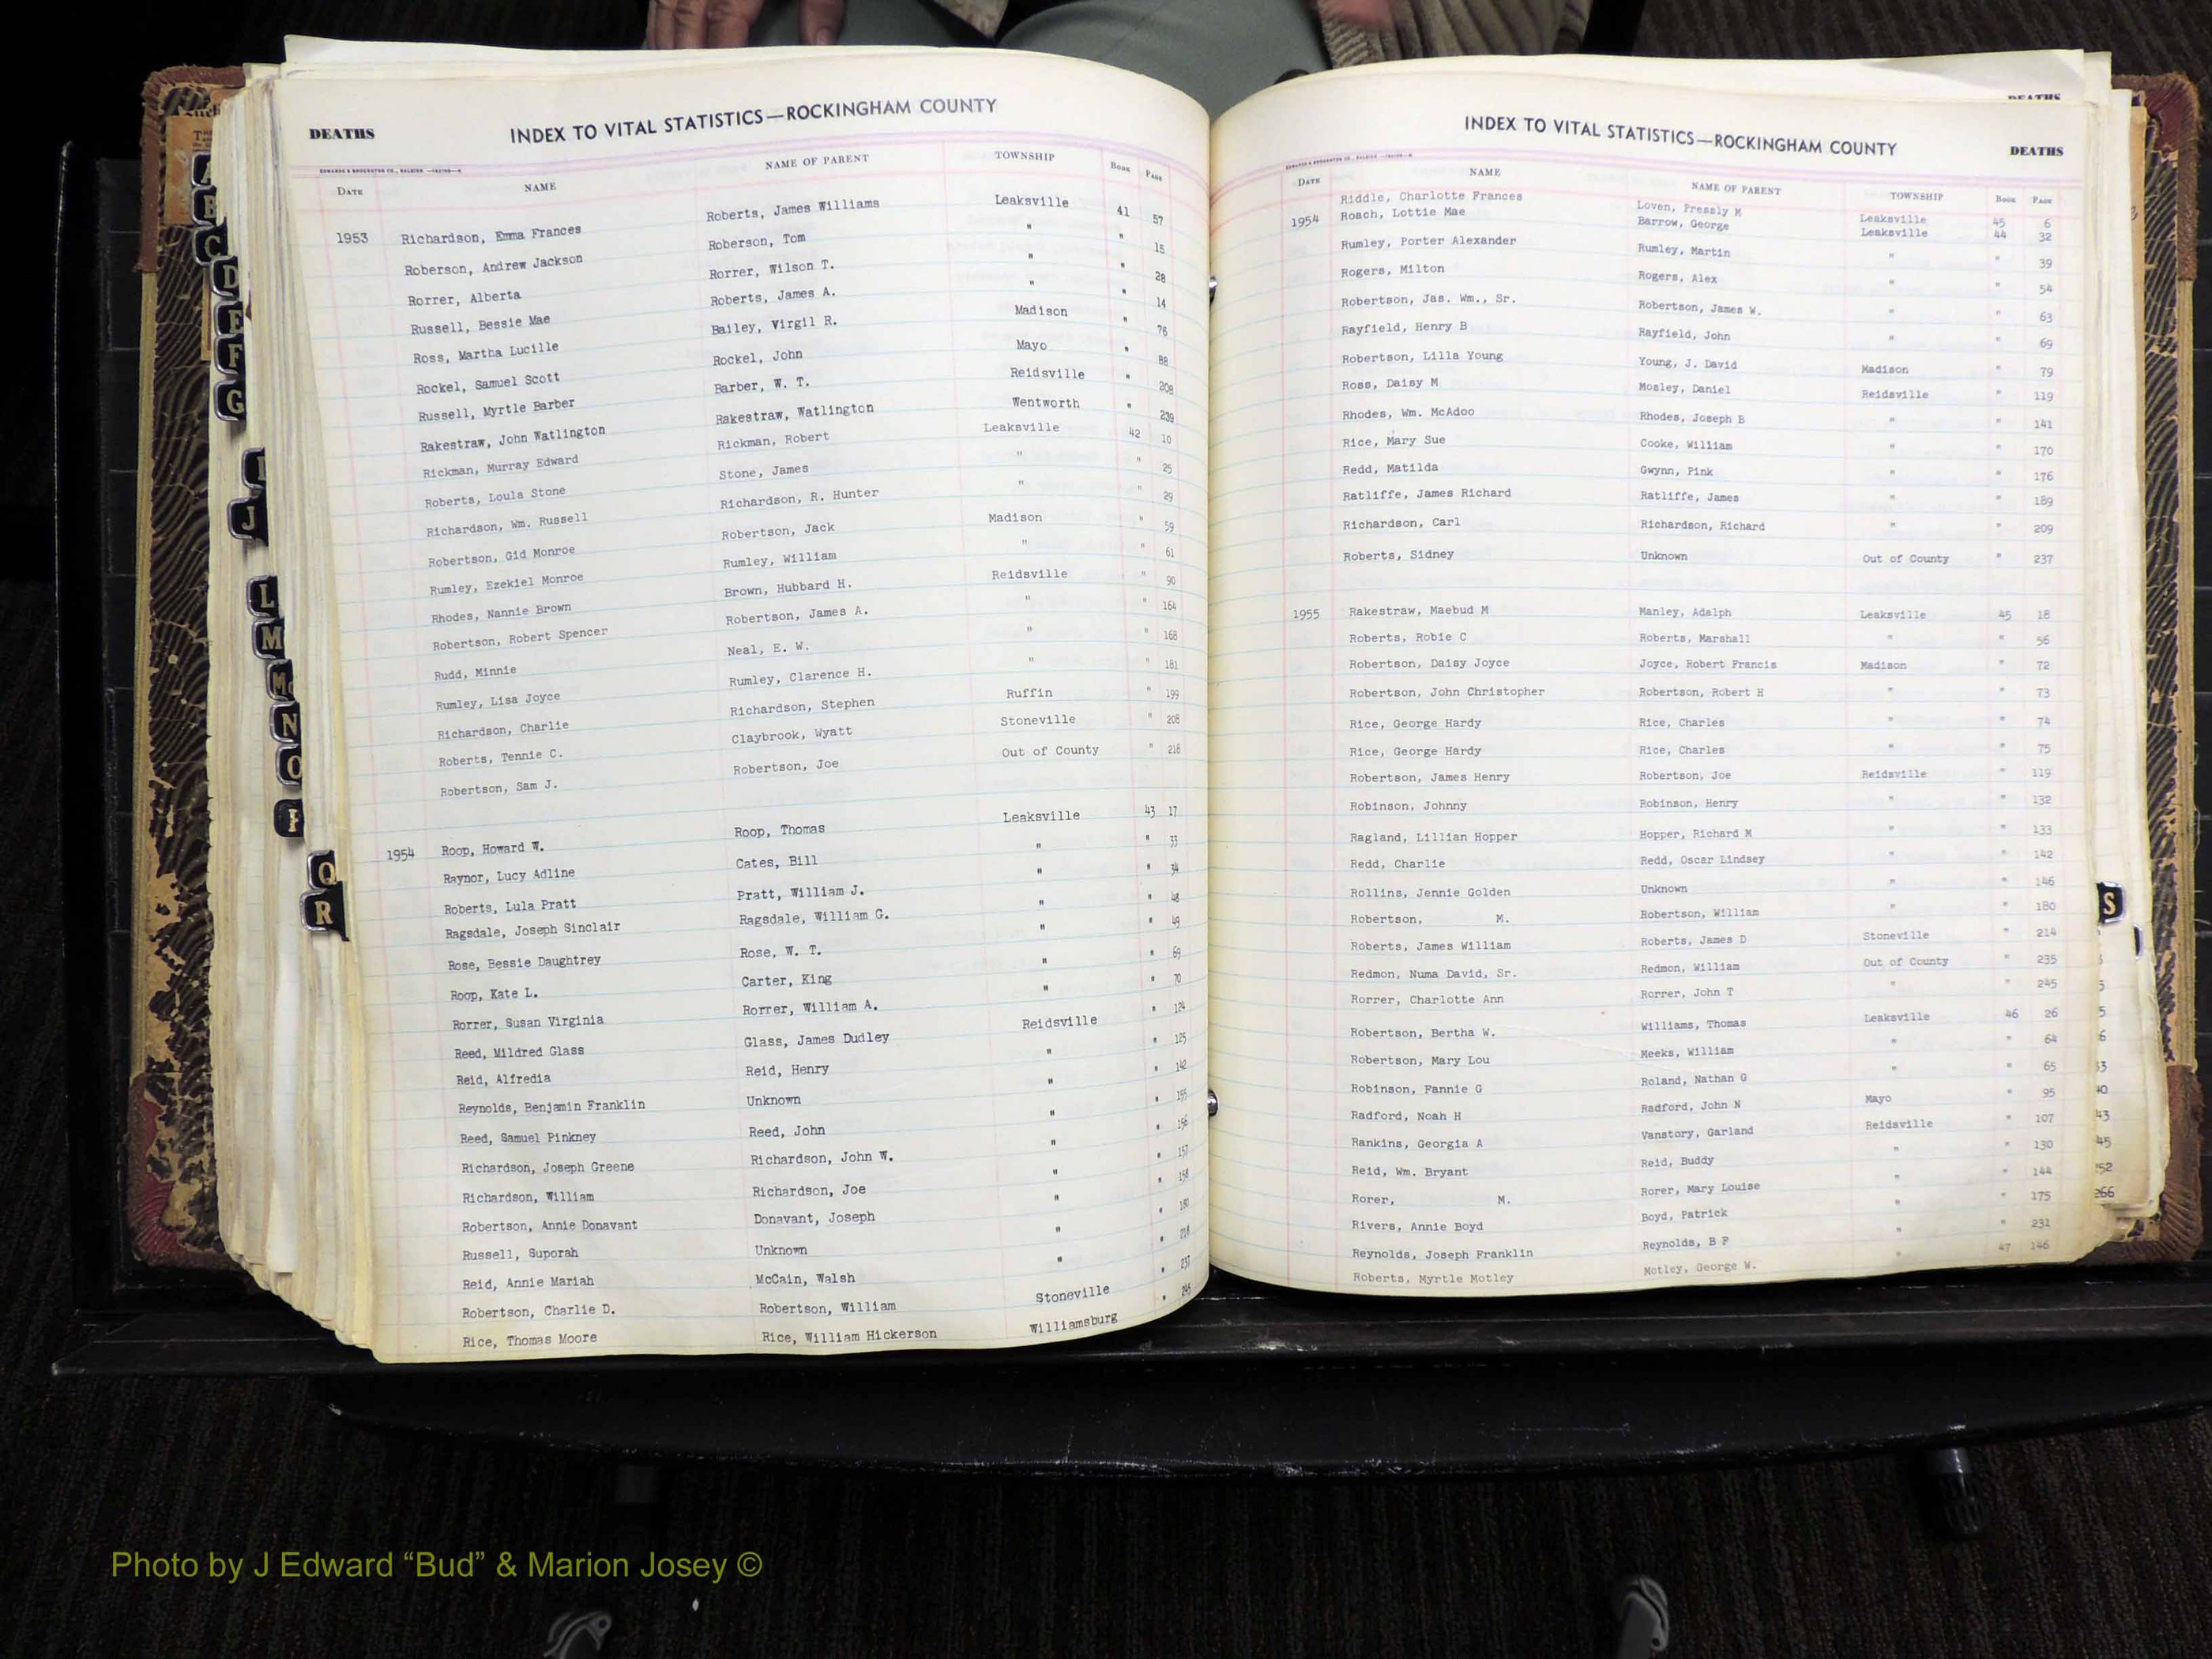 DEATHS
INDEX TO VITAL STATISTICS—ROCKINGHAM COUNTY
DATE NAME NAME OF PARENT TOWNSHIP BOOK PAGE
1953 Richardson, Emma Frances Roberts, James Williams Leaksville 41 57
Roberson, Andrew Jackson Roberson, Tom " " 15
Rorrer, Alberta Rorrer, Wilson T. " " 28
Russell, Bessie Mae Roberts, James A. " " 14
Ross, Martha Lucille Bailey, Virgil R. Madison " 76
Rockel, Samuel Scott Rockel, John Mayo " 88
Russell, Myrtle Barber Barber, W. T. Reidsville " 208
Rakestraw, John Watlington Rakestraw, Watlington Wentworth " 239
Rickman, Murray Edward Rickman, Robert Leaksville 42 10
Roberts, Loula Stone Stone, James " " 25
Richardson, Wm. Russell Richardson, R. Hunter " " 29
Robertson, Gid Monroe Robertson, Jack Madison " 59
Rumley, Ezekiel Monroe Rumley, William " " 61
Rhodes, Nannie Brown Brown, Hubbard H. Reidsville " 90
Robertson, Robert Spencer Robertson, James A. " " 164
Rudd, Minnie Neal, E. W. " " 168
Rumley, Lisa Joyce Rumley, Clarence H. " " 181
Richardson, Charlie Richardson, Stephen Ruffin " 199
Roberts, Tennie C. Claybrook, Wyatt Stoneville " 208
Robertson, Sam J. Robertson, Joe Out of County " 218
1954 Roop, Howard W. Roop, Thomas Leaksville 43 17
Raynor, Lucy Adline Cates, Bill " " 33
Roberts, Lula Pratt Pratt, William J. " " 34
Ragsdale, Joseph Sinclair Ragsdale, William G. " " 48
Rose, Bessie Daughtrey Rose, W. T. " " 49
Roop, Kate L. Carter, King " " 69
Rorrer, Susan Virginia Rorrer, William A. " " 70
Reed, Mildred Glass Glass, James Dudley Reidsville " 124
Reid, Alfredia Reid, Henry " " 125
Reynolds, Benjamin Franklin Unknown " " 142
Reed, Samuel Pinkney Reed, John " " 155
Richardson, Joseph Greene Richardson, John W. " " 156
Richardson, William Richardson, Joe " " 157
Robertson, Annie Donavant Donavant, Joseph " " 158
Russell, Suporah Unknown " " 180
Reid, Annie Mariah McCain, Walsh " " 218
Robertson, Charlie D. Robertson, William Stoneville " 237
Rice, Thomas Moore Rice, William Hickerson Williamsburg " 245
INDEX TO VITAL STATISTICS—ROCKINGHAM COUNTY
DEATHS
DATE NAME NAME OF PARENT TOWNSHIP BOOK PAGE
Riddle, Charlotte Frances Loven, Pressly M Leaksville 45 6
1954 Roach, Lottie Mae Barrow, George Leaksville 44 32
Rumley, Porter Alexander Rumley, Martin " " 39
Rogers, Milton Rogers, Alex " " 54
Robertson, Jas. Wm., Sr. Robertson, James W. " " 63
Rayfield, Henry B Rayfield, John " " 69
Robertson, Lilla Young Young, J. David Madison " 79
Ross, Daisy M Mosley, Daniel Reidsville " 119
Rhodes, Wm. McAdoo Rhodes, Joseph B " " 141
Rice, Mary Sue Cooke, William " " 170
Redd, Matilda Gwynn, Pink " " 176
Ratliffe, James Richard Ratliffe, James " " 189
Richardson, Carl Richardson, Richard " " 209
Roberts, Sidney Unknown Out of County " 237
1955 Rakestraw, Maebud M Manley, Adalph Leaksville 45 18
Roberts, Robie C Roberts, Marshall " " 56
Robertson, Daisy Joyce Joyce, Robert Francis Madison " 72
Robertson, John Christopher Robertson, Robert H " " 73
Rice, George Hardy Rice, Charles " " 74
Rice, George Hardy Rice, Charles " " 75
Robertson, James Henry Robertson, Joe Reidsville " 119
Robinson, Johnny Robinson, Henry " " 132
Ragland, Lillian Hopper Hopper, Richard M " " 133
Redd, Charlie Redd, Oscar Lindsey " " 142
Rollins, Jennie Golden Unknown " " 146
Robertson, M. Robertson, William " " 180
Roberts, James William Roberts, James D Stoneville " 214
Redmon, Numa David, Sr. Redmon, William Out of County " 235
Rorrer, Charlotte Ann Rorrer, John T " " 245
Robertson, Bertha W. Williams, Thomas Leaksville 46 26
Robertson, Mary Lou Meeks, William " " 64
Robinson, Fannie G Roland, Nathan G " " 65
Radford, Noah H Radford, John N Mayo " 95
Rankins, Georgia A Vanstory, Garland Reidsville " 107
Reid, Wm. Bryant Reid, Buddy " " 130
Rorer, M. Rorer, Mary Louise " " 144
Rivers, Annie Boyd Boyd, Patrick " " 175
Reynolds, Joseph Franklin Reynolds, B F " " 231
Roberts, Myrtle Motley Motley, George W. " 47 146
A
B
C
D
E
F
G
I
J
L
M
M
N
O
P
Q
R
S
Photo by J Edward “Bud” & Marion Josey ©